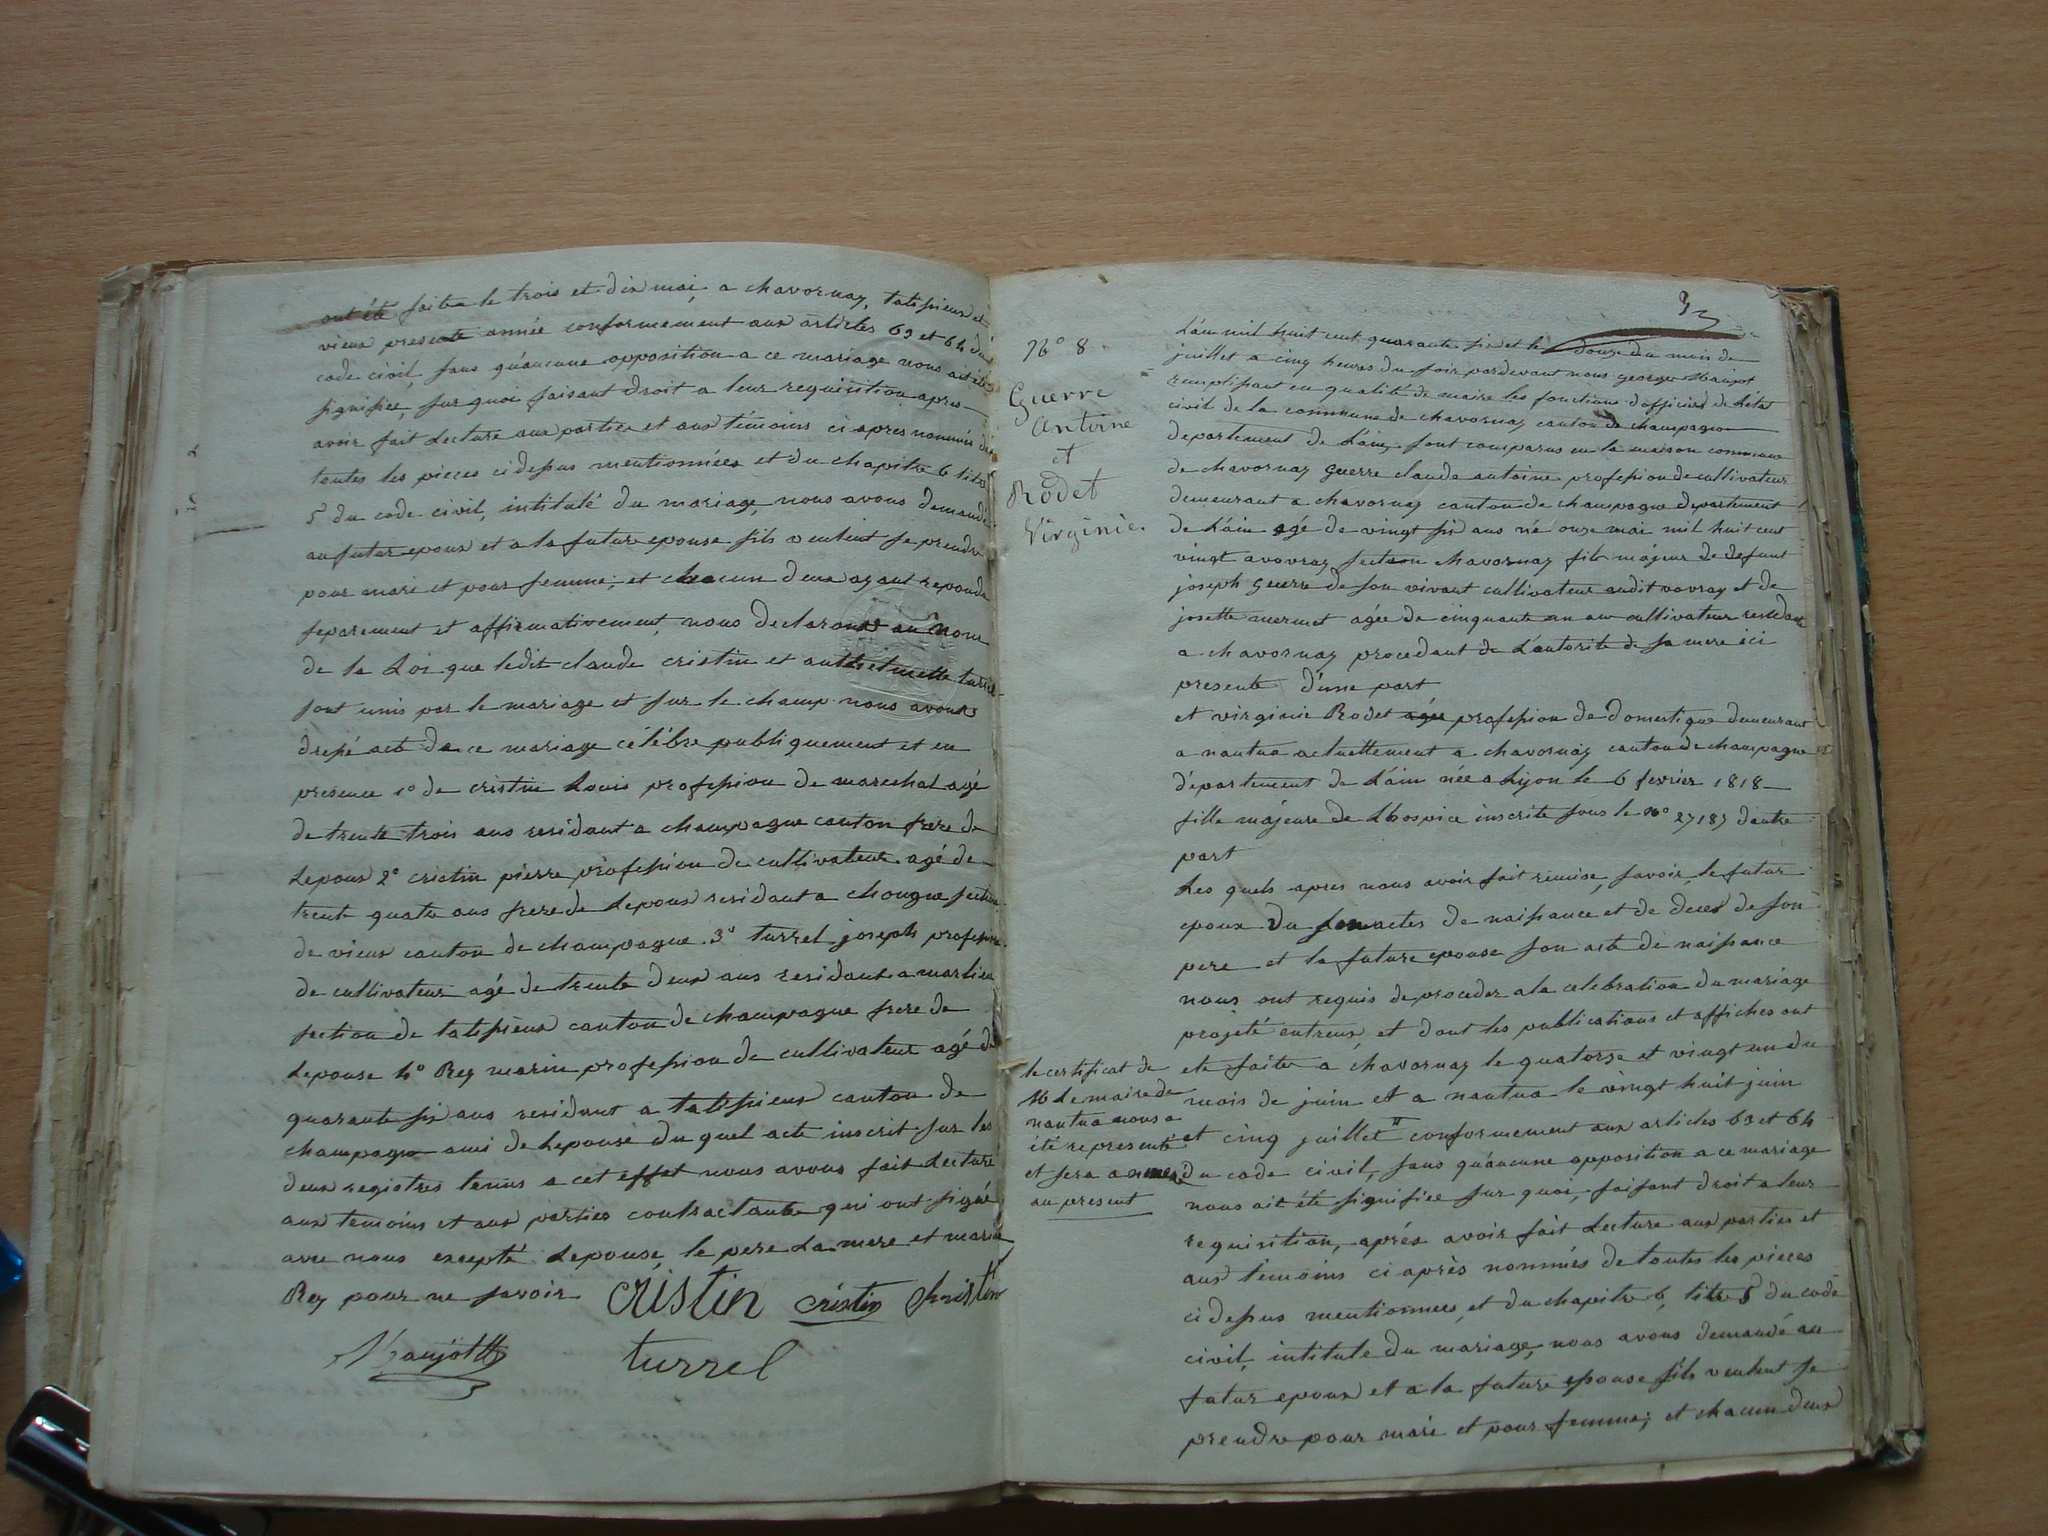 ont été faites le trois et dix mai, a chavornay, talissieu et
vieux presente année conformement aux articles 63 et 64 du
code civil, sans qu'aucune opposition a ce mariage nous ait été
signifiée, sur quoi faisant droit a leur requisition apres
avoir fait lecture aux parties et aux témoins ci apres nommés de
toutes les pieces ci dessus mentionnées et du chapitre 6 titre
5 du code civil, intitulé du mariage, nous avons demandé
au futur epoux et a la future epouse sils veulent se prendre
pour mari et pour femme; et chacun deux ayant repondu
separement et affirmativement, nous declarons au nom
de la Loi que ledit claude cristin et turrel
sont unis par le mariage et sur le champ nous avons
dressé acte de ce mariage célébré publiquement et en
presence 1° de cristin Louis profession de marechal agé
de trente trois ans residant a champagne canton frere de
Lepoux 2° cristin pierre profession de cultivateur agé de
trente quatre ans frere de Lepoux residant a chongne section
de vieux canton de champagne 3° turrel joseph profession
de cultivateur agé de trente deux ans residant a marlieu
section de talissieux canton de champagne frere de
Lepouse 4° Rey marin profession de cultivateur agé de
quarante six ans residant a talissieux canton de
champagne ami de Lepouse du quel acte inscrit sur les
deux registres tenus a cet effet nous avons fait lecture
aux temoins et aux parties contractantes qui ont signé
avec nous excepté Lepouse, le pere La mere et marin
Rey pour ne savoir cristin cristin christin
Maujot turrel
N° 8
Guerre
Antoine
et
Rodet
Virginie.
L'an mil huit cent quarante six et le douze du mois de
juillet a cinq heures du soir pardevant nous george Maujot
remplissant en qualité de maire les fonctions d'officier de letat
civil de la commune de chavornay canton de champagne
departement de L'ain, sont comparus en la maison commune
de chavornay Guerre claude antoine profession de cultivateur
demeurant a chavornay canton de champagne departement
de L'ain agé de vingt six ans né onze mai mil huit cent
vingt a vovray section chavornay fils májeur de defunt
joseph Guerre de son vivant cultivateur audit vovray et de
josette mermet agée de cinquante un ans cultivateur residant
a chavornay procedant de L'autorité de sa mere ici
presente d'une part
et virginie Rodet agée profession de domestique demeurant
a nantua actuellement a chavornay canton de champagne
département de L'ain née a Lyon le 6 fevrier 1818
fille májeure de Lhospice inscrite sous le N° 27187 dautre
part
Les quels apres nous avoir fait remise, savoir, le futur
epoux du son actes de naissance et de deces de son
pere et la future epouse son acte de naissance
nous ont requis de proceder a la celebration du mariage
projeté entreux, et dont les publications et affiches ont
ete faites a chavornay le quatorze et vingt un du
mois de juin et a nantua le vingt huit juin
et cinq juillet conformement aux articles 63 et 64
du code civil, sans qu'aucune opposition a ce mariage
nous ait été signifiée sur quoi, faisant droit a leur
requisition, aprés avoir fait Lecture aux parties et
aux témoins ci aprés nommés de toutes les pieces
ci dessus mentionnees, et du chapitre 6, titre 5 du code
civil, intitulé du mariage, nous avons demandé au
futur epoux et a la future epouse sils veulent se
prendre pour mari et pour femme; et chacun deux
le certificat de
M Le maire de
nantua nous a
été representé
et sera annexé
au present